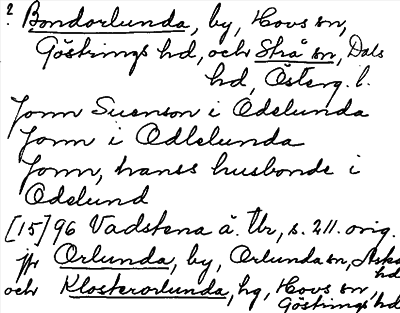 ? Bondorlunda, by, Hovs sn,
Göstrings hd, och Strå sn, Dals
hd, Österg. l.
Jonn Suenson i Odelunda
Jonn i Odlelunda
Jonn, hanss husbonde i
Odelund
[15]96 Vadstena ä. Tb, s. 211. orig.
jfr Orlunda, by, Orlunda sn, Aska
hd
och Klosterorlunda, hg, Hovs sn,
Göstrings hd